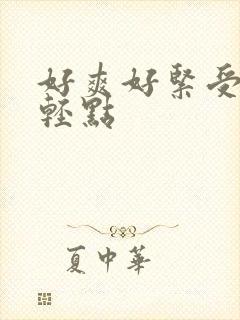 好爽好緊受
輕點
夏中華